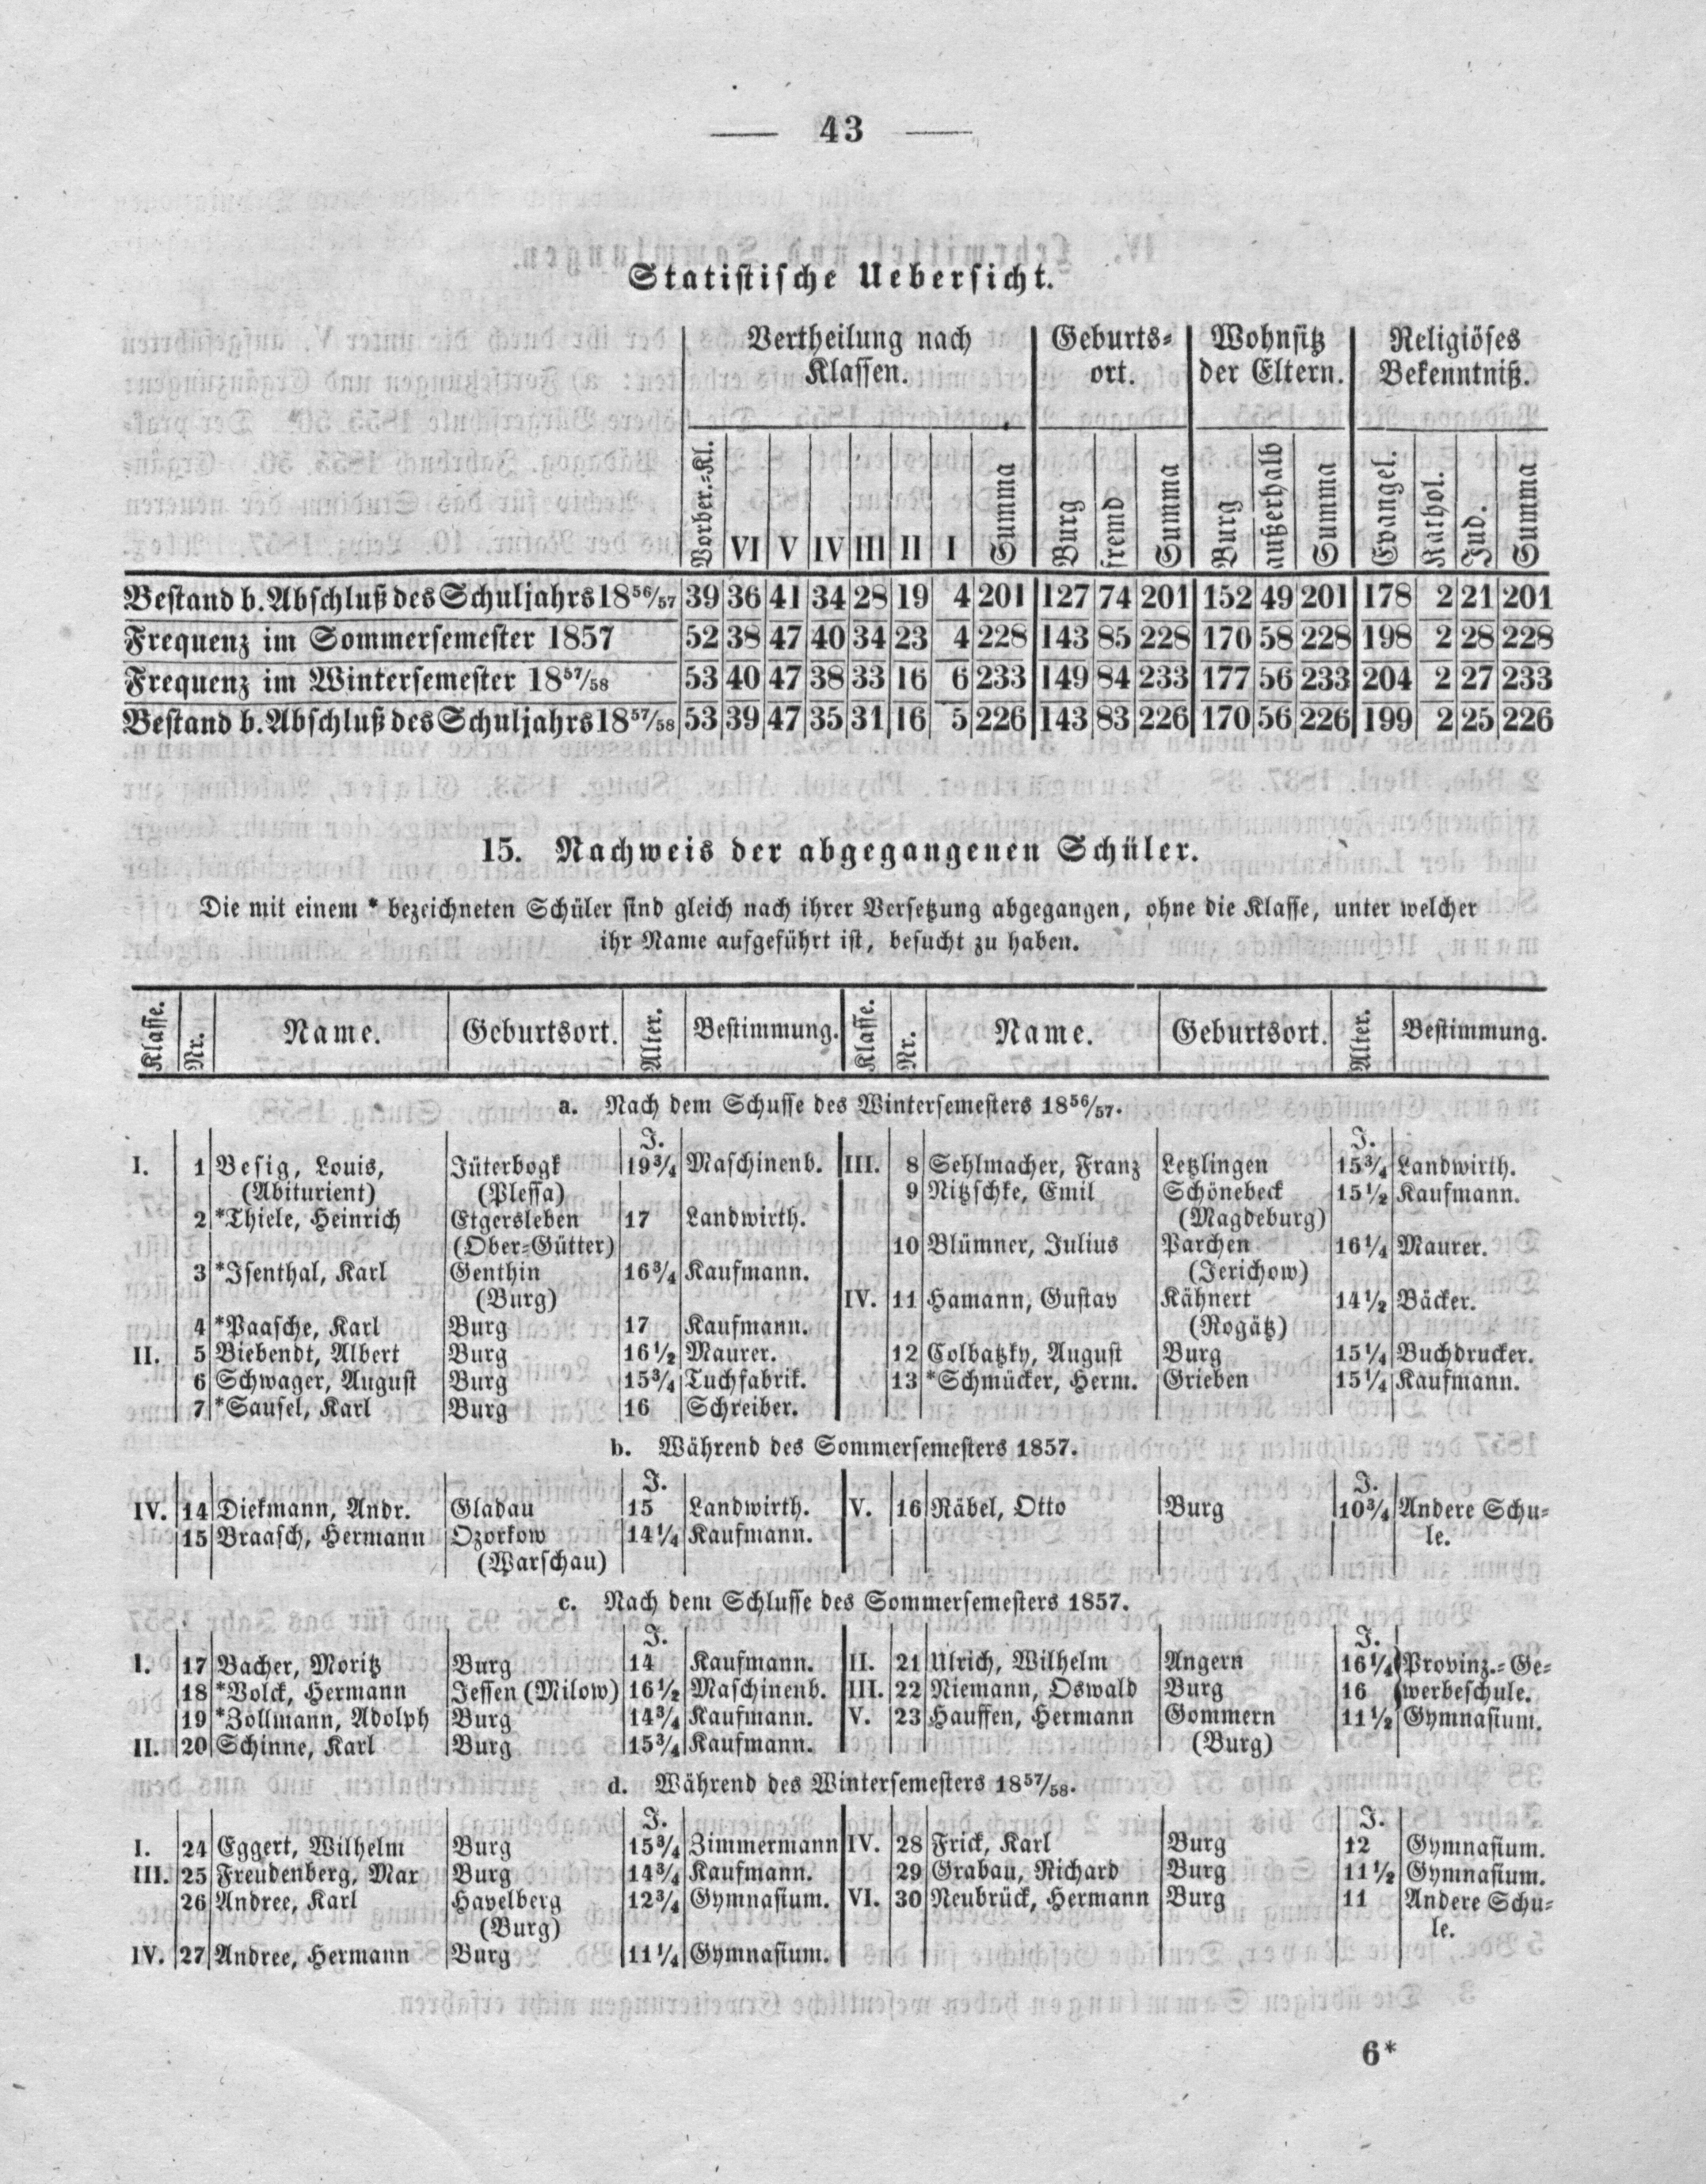 — 43 —
Statistische Uebersicht.
Vertheilung nach Klassen. Geburts- ort. Wohnsitz der Eltern. Religiöses Bekenntniß.
Vorber.-Kl. VI V IV III II I Summa Burg fremd Summa Burg außerhalb Summa Evangel. Kathol. Jud. Summa
Bestand b. Abschluß des Schuljahrs 18⁵⁶/₅₇ 39 36 41 34 28 19 4 201 127 74 201 152 49 201 178 2 21 201
Frequenz im Sommersemester 1857 52 38 47 40 34 23 4 228 143 85 228 170 58 228 198 2 28 228
Frequenz im Wintersemester 18⁵⁷/₅₈ 53 40 47 38 33 16 6 233 149 84 233 177 56 233 204 2 27 233
Bestand b. Abschluß des Schuljahrs 18⁵⁷/₅₈ 53 39 47 35 31 16 5 226 143 83 226 170 56 226 199 2 25 226
15. Nachweis der abgegangenen Schüler.
Die mit einem * bezeichneten Schüler sind gleich nach ihrer Versetzung abgegangen, ohne die Klasse, unter welcher
ihr Name aufgeführt ist, besucht zu haben.
Klasse. Nr. Name. Geburtsort. Alter. Bestimmung. Klasse. Nr. Name. Geburtsort. Alter. Bestimmung.
a. Nach dem Schusse des Wintersemesters 18⁵⁶/₅₇.
J. J.
I. 1 Besig, Louis, Jüterbogk 19¾ Maschinenb. III. 8 Sehlmacher, Franz Letzlingen 15¾ Landwirth.
(Abiturient) (Plessa) 9 Nitzschke, Emil Schönebeck 15½ Kaufmann.
2 *Thiele, Heinrich Etgersleben 17 Landwirth. (Magdeburg)
(Ober-Gütter) 10 Blümner, Julius Parchen 16¼ Maurer.
3 *Isenthal, Karl Genthin 16¾ Kaufmann. (Jerichow)
(Burg) IV. 11 Hamann, Gustav Kähnert 14½ Bäcker.
4 *Paasche, Karl Burg 17 Kaufmann. (Rogätz)
II. 5 Biebendt, Albert Burg 16½ Maurer. 12 Colbatzky, August Burg 15¼ Buchdrucker.
6 Schwager, August Burg 15¾ Tuchfabrik. 13 *Schmücker, Herm. Grieben 15¼ Kaufmann.
7 *Sausel, Karl Burg 16 Schreiber.
b. Während des Sommersemesters 1857.
J. J.
IV. 14 Diekmann, Andr. Gladau 15 Landwirth. V. 16 Räbel, Otto Burg 10¾ Andere Schu-
15 Braasch, Hermann Ozorkow 14¼ Kaufmann. le.
(Warschau)
c. Nach dem Schlusse des Sommersemesters 1857.
J. J.
I. 17 Bacher, Moritz Burg 14 Kaufmann. II. 21 Ulrich, Wilhelm Angern 16¼ Provinz.-Ge-
18 *Volck, Hermann Jessen (Milow) 16½ Maschinenb. III. 22 Niemann, Oswald Burg 16 werbeschule.
19 *Zollmann, Adolph Burg 14¾ Kaufmann. V. 23 Hauffen, Hermann Gommern 11½ Gymnasium.
II. 20 Schinne, Karl Burg 15¾ Kaufmann. (Burg)
d. Während des Wintersemesters 18⁵⁷/₅₈.
J. J.
I. 24 Eggert, Wilhelm Burg 15¾ Zimmermann IV. 28 Frick, Karl Burg 12 Gymnasium.
III. 25 Freudenberg, Max Burg 14¾ Kaufmann. 29 Grabau, Richard Burg 11½ Gymnasium.
26 Andree, Karl Havelberg 12¾ Gymnasium. VI. 30 Neubrück, Hermann Burg 11 Andere Schu-
(Burg) le.
IV. 27 Andree, Hermann Burg 11¼ Gymnasium.
6*